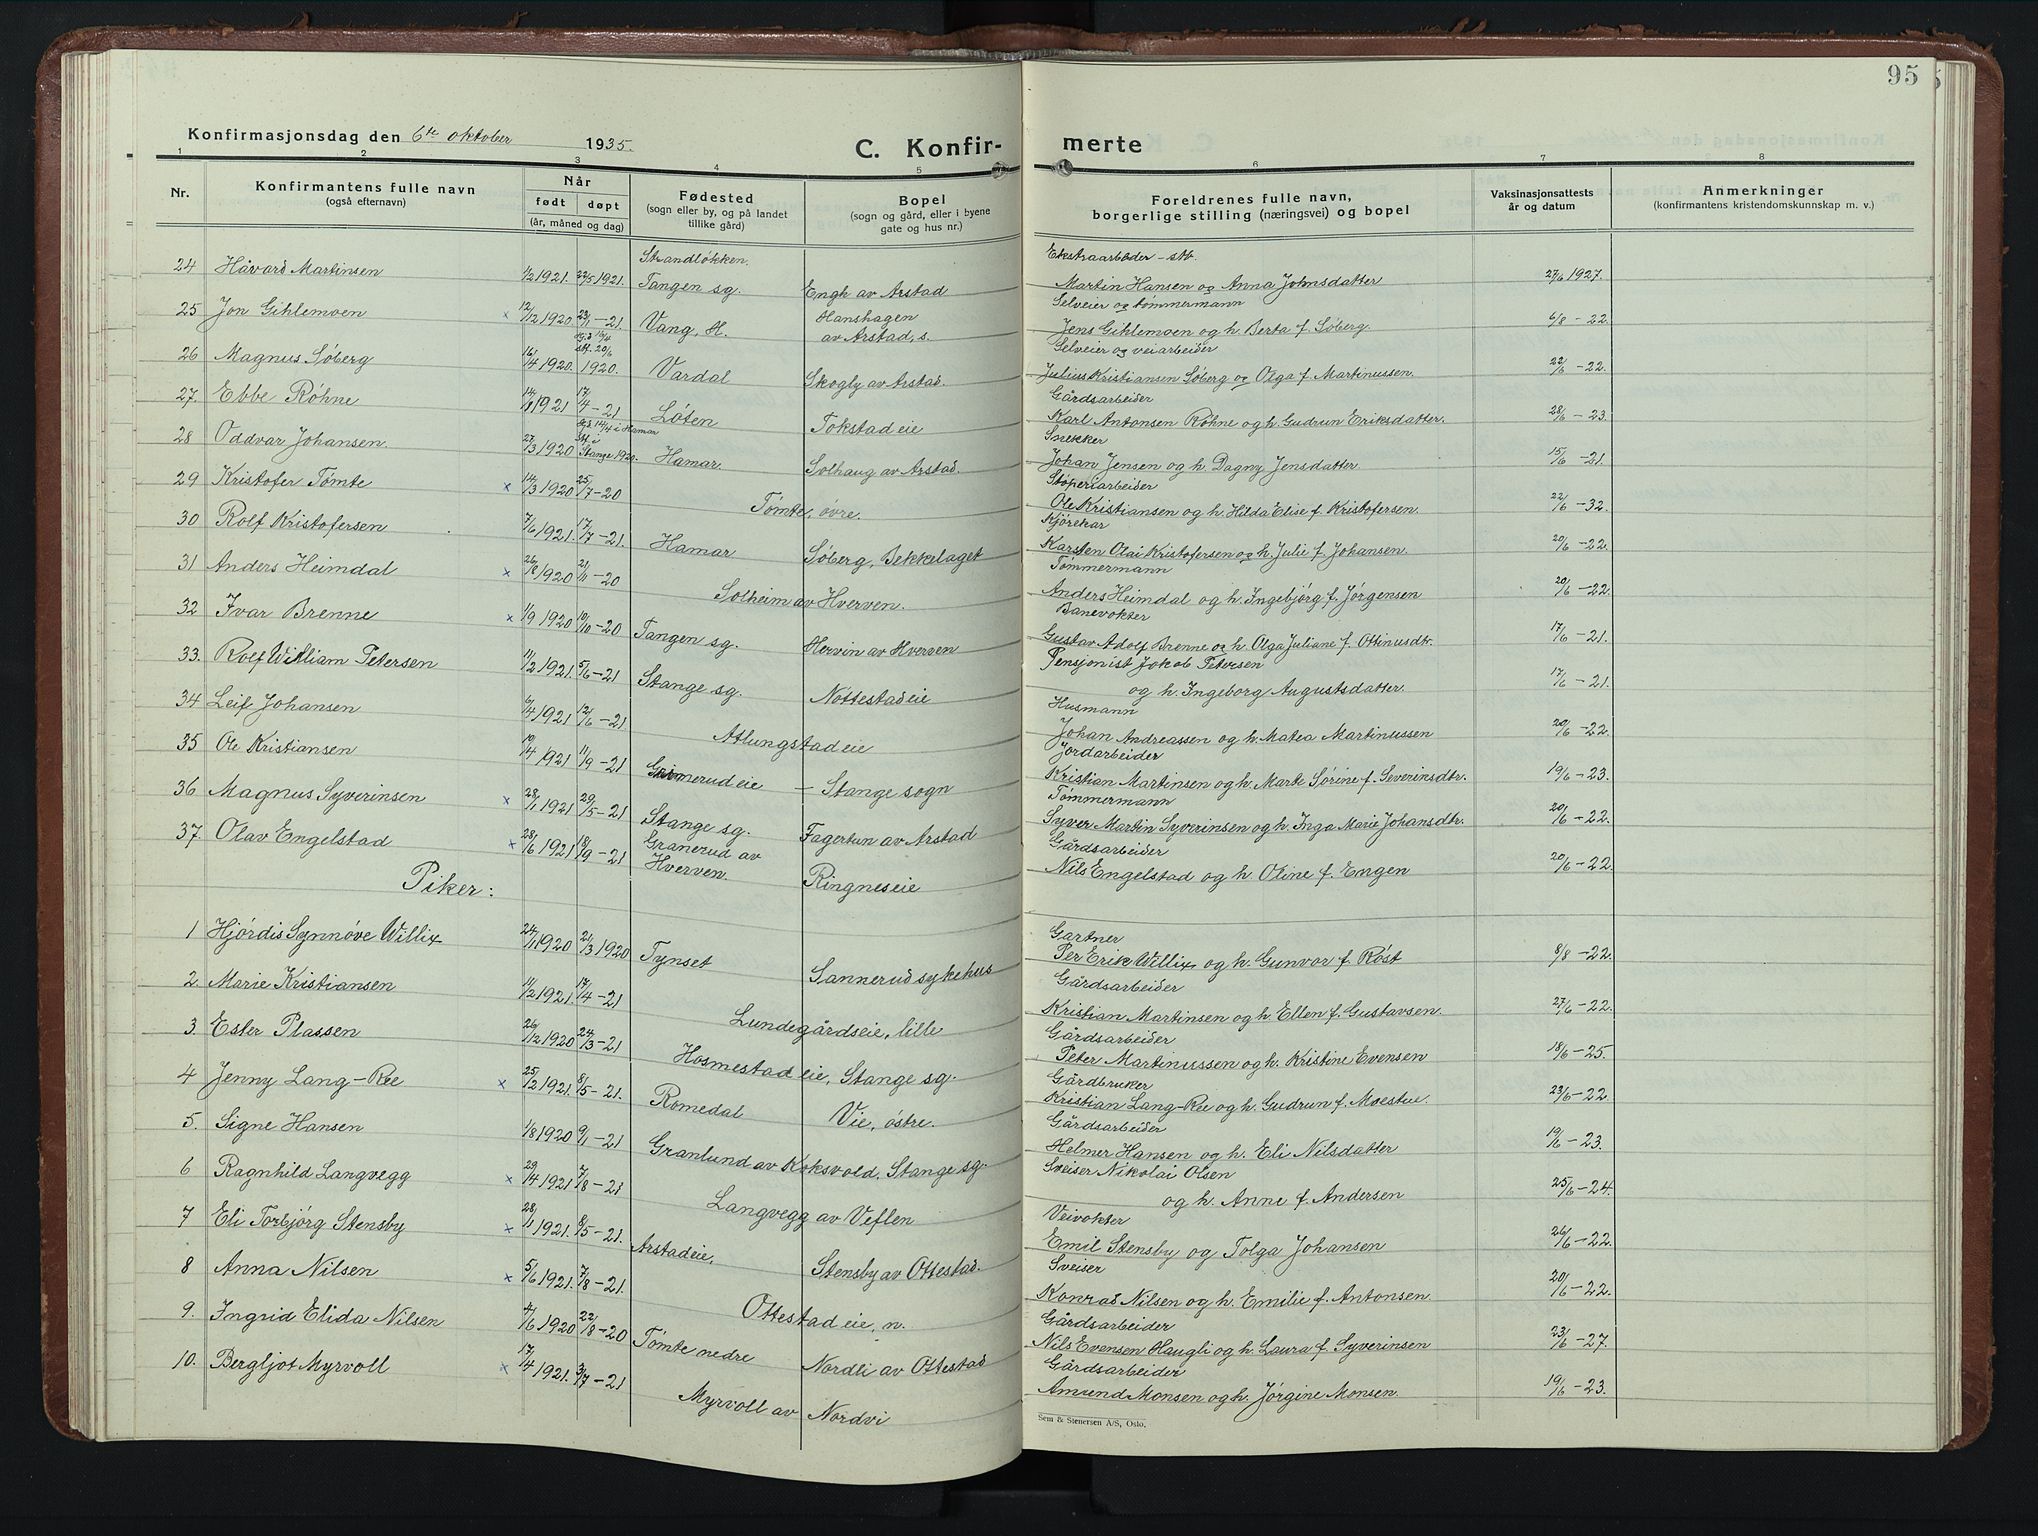 95
Konfirmasjonsdag den 6te oktober 1935.
C. Konfir-
merte
1 2 3 4 5 6 7 8
Nr. Konfirmantens fulle navn (også efternavn) Når født døpt (år, måned og dag) Fødested (sogn eller by, og på landet tillike gård) Bopel (sogn og gård, eller i byene gate og hus nr.) Foreldrenes fulle navn, borgerlige stilling (næringsvei) og bopel Vaksinasjonsattests år og datum Anmerkninger (konfirmantens kristendomskunnskap m. v.)
Strandløkken. Ekstraarbeider - stb.
24 Håvard Martinsen 1/2 1921. 22/5 1921. Tangen sg. Engh av Arstad Martin Hansen og Anna Johnsdatter 27/6 1927.
Hanshagen Selveier og tømmermann
25 Jon Gihlemoen x 12/12 1920 23/1 - 21. Vang, H. av Arstad, s. Jens Gihlemoen og h. Berta f. Søberg. 6/8 - 22.
Selveier og veiarbeider
26 Magnus Søberg 16/4 1920. 1920. Vardal Skogly av Arstad. Julius Kristiansen Søberg og Olga f. Martinussen. 22/6 - 22.
Gårdsarbeider
27. Ebbe Røhne 1921 17/4 - 21 Løten Tokstadeie Karl Antonsen Røhne og h. Gudrun Eriksdatter. 28/6 - 23.
i Hamar Snekker
28 Oddvar Johansen. 27/3 1920 Stange 1920. Hamar. Solhaug av Arstad. Johan Jensen og h. Dagny Jensdatter 15/6 - 21.
Støperiarbeider
29 Kristofer Tømte x 14/3 1920 25/7 - 20 Tømte, øvre. Ole Kristiansen og h. Hilda Elise f. Kristofersen. 22/6 - 32.
Kjørekar
30 Rolf Kristofersen 7/6 1921. 17/7 - 21. Hamar Søberg, Bekkelaget Karsten Olai Kristofersen og h. Julie f. Johansen. 20/6 - 22.
Tømmermann
31 Anders Heimdal x 26/8 1920 21/11 - 20 Solheim av Hverven. Anders Heimdal og h. Ingebjørg f. Jørgensen 20/6 - 22.
Banevokter
32 Ivar Brenne x 1/9 1920 10/10 - 20 Tangen sg. Hervin av Hverven Gustav Adolf Brenne og h. Olga Juliane f. Ottinusdtr. 17/6 - 21.
Pensjonist Jakob Petersen
33. Rolf William Petersen 11/2 1921. 5/6 - 21 Stange sg. Nøttestadeie og h. Ingeborg Augustsdatter. 17/6 - 21.
Husmann
34 Leif Johansen 6/4 1921 12/6 - 21 Atlungstadeie Johan Andreassen og h. Matea Martinussen 20/6 - 22.
Jordarbeider
35 Ole Kristiansen 10/4 1921 11/9 - 21 Grimerudeie - Stange sogn Kristian Martinsen og h. Marte Sørine f. Severinsdtr. 19/6 - 23.
Tømmermann
36 Magnus Syverinsen x 28/1 1921 29/5 - 21 Stange sg. Fagertun av Arstad Syver Martin Syverinsen og h. Inga Marie Johansdtr. 20/6 - 22.
Granerud av Gårdsarbeider
37. Olav Engelstad x 28/6 1921 18/9 - 21 Hverven. Ringneseie Nils Engelstad og h. Oline f. Engen 20/6 - 22.
Piker:
Gartner
1 Hjørdis Synnøve Willix 24/1 1920 21/3 1920 Tynset Sannerud sykehus Per Erik Willix og h. Gunvor f. Røst 8/8 - 22.
Gårdsarbeider
2. Marie Kristiansen 11/2 1921. 17/4 - 21 Lundegårdseie, lille Kristian Martinsen og h. Ellen f. Gustavsen. 27/6 - 22.
Gårdsarbeider
3. Ester Plassen 26/12 1920 24/3 - 21 Hosmestadeie, Stange sg. Peter Martinussen og h. Kristine Evensen 18/6 - 25.
Gårdbruker
4 Jenny Lang-Ree x 25/2 1921. 8/5 - 21. Romedal Vie, østre. Kristian Lang-Ree og h. Gudrun f. Moestue. 23/6 - 22.
Gårdsarbeider
5. Signe Hansen 1/8 1920 9/1 - 21 Granlund av Koksvold, Stange sg. Helmer Hansen og h. Eli Nilsdatter 19/6 - 23.
Sveiser Nikolai Olsen
6 Ragnhild Langvegg x 29/4 1921 7/8 - 21 Langvegg av Veflen og h. Anne f. Andersen 25/6 - 24.
Veivokter
7 Eli Torbjørg Stensby x 28/1 1921. 8/5 - 21. Arstadeie, Stensby av Ottestad. Emil Stensby og Tolga Johansen 26/6 - 22.
Sveiser
8 Anna Nilsen x 5/6 1921. 7/8 - 21. Ottestadeie, n. Konrad Nilsen og h. Emilie f. Antonsen. 20/6 - 22.
Gårdsarbeider
9. Ingrid Elida Nilsen 4/6 1920 22/8 - 20 Tømte nedre Nordli av Ottestad Nils Evensen Haugli og h. Laura f. Syverinsen 23/6 - 27.
Gårdsarbeider
10. Bergljot Myrvoll x 17/4 1921. 3/7 - 21 Myrvoll av Nordvi Amund Monsen og h. Jørgine Monsen. 19/6 - 23.
Sem & Stenersen A/S, Oslo.